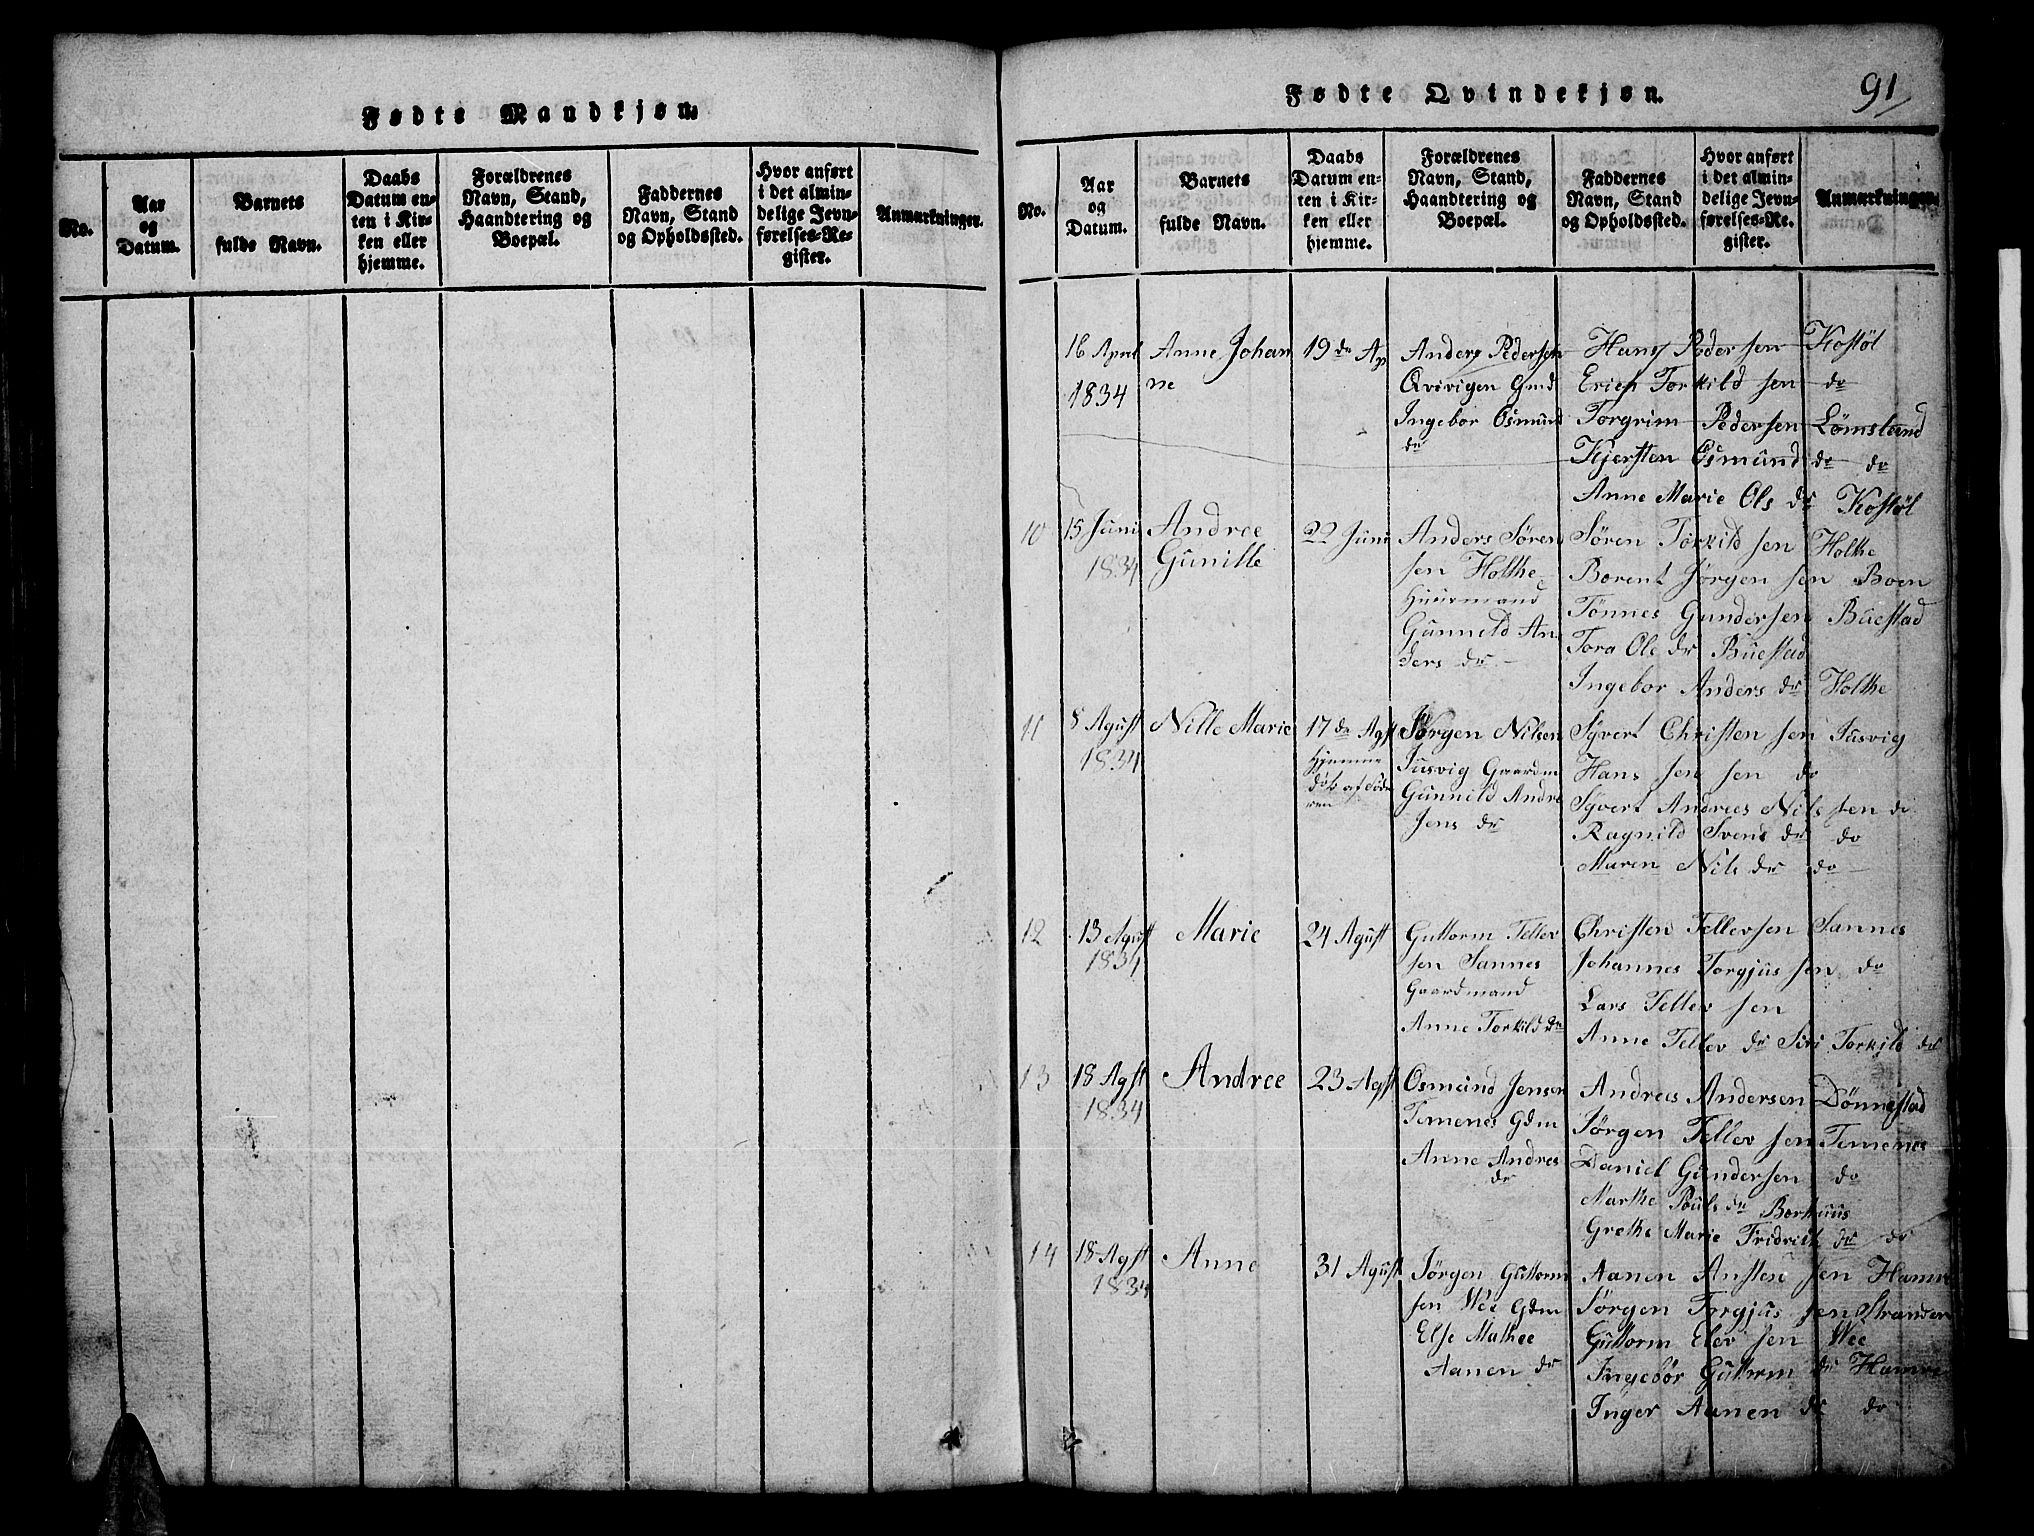 Fødte Mandkjøn.
No.
Aar
og
Datum.
Barnets
fulde Navn.
Daabs
Datum en-
ten i Kir-
ken eller
hjemme.
Forældrenes
Navn, Stand,
Haandtering og
Boepæl.
Faddernes
Navn, Stand
og Opholdssted.
Hvor anført
i det almin-
delige Jevn-
førelses-Re-
gister.
Anmærkninger.
Fødte Qvindekjøn.
91
No.
Aar
og
Datum.
Barnets
fulde Navn.
Daabs
Datum en-
ten i Kir-
ken eller
hjemme.
Forældrenes
Navn, Stand,
Haandtering og
Boepæl.
Faddernes
Navn, Stand
og Opholdssted.
Hvor anført
i det almin-
delige Jevn-
førelses-Re-
gister.
Anmærkninger.
16 April
1834
Anne Johan
ne
19 de Ap
Anders Pedersen
Qvivigen Gmd
Ingebor Osmund
dr
Hans Pedersen Kostøl
Erich Torkild sen do
Torgrim Pedersen Lømsland
Kjersten Osmund dr do
Anne Marie Ols dr Kostøl
10
15 Juni
1834
Andree
Gunille
22 Juni
Anders Søren
sen Holthe
Huusmand
Gunneld An
ders dr
Søren Torkild sen Holthe
Borent Jørgen sen Boen
Tönnes Gundersen Büestad
Tora Ole dr Büestad
Ingebor Anders dr Holthe
11
8 Agust
1834
Nille Marie
17 de Agst
Hjemme
døb af
Jørgen Nilsen
Jusvig Gaardm
Gunnild Andre
Jens dr
Syvert Christen sen Jusvig
Hans Jen sen do
Syvert Andrees Nils sen do
Ragnild Svens dr do
Maren Nils dr do
12
13 Agust
1834
Marie
24 Agust
Guttorm Tellev
sen Sannes
Gaardmand
Anne Torkild dr
Christen Tellevsen Sannes
Johannes Torgjus sen do
Lars Tellev sen
Anne Tellev dr Siri Torkild dr
13
18 Agst
1834
Andree
23 Agst
Osmund Jensen
Temenes Gdm
Anne Andres
dr
Andreas Andersen Dönnestad
Jørgen Tellev sen Temenes
Daniel Gundersen do
Marthe Pouls dr Borkuus
Grethe Marie Fridrich dr do
14
18 Agst
1834
Anne
31 Agust
Jørgen Guttorm
sen Wee Gdm
Else Mathee
Aanen dr
Aanen Ansten sen Hamre
Jørgen Torgjus sen Stranden
Guttorm Elev sen Wee
Ingebör Guttorm dr Hamre
Inger Aanen dr do